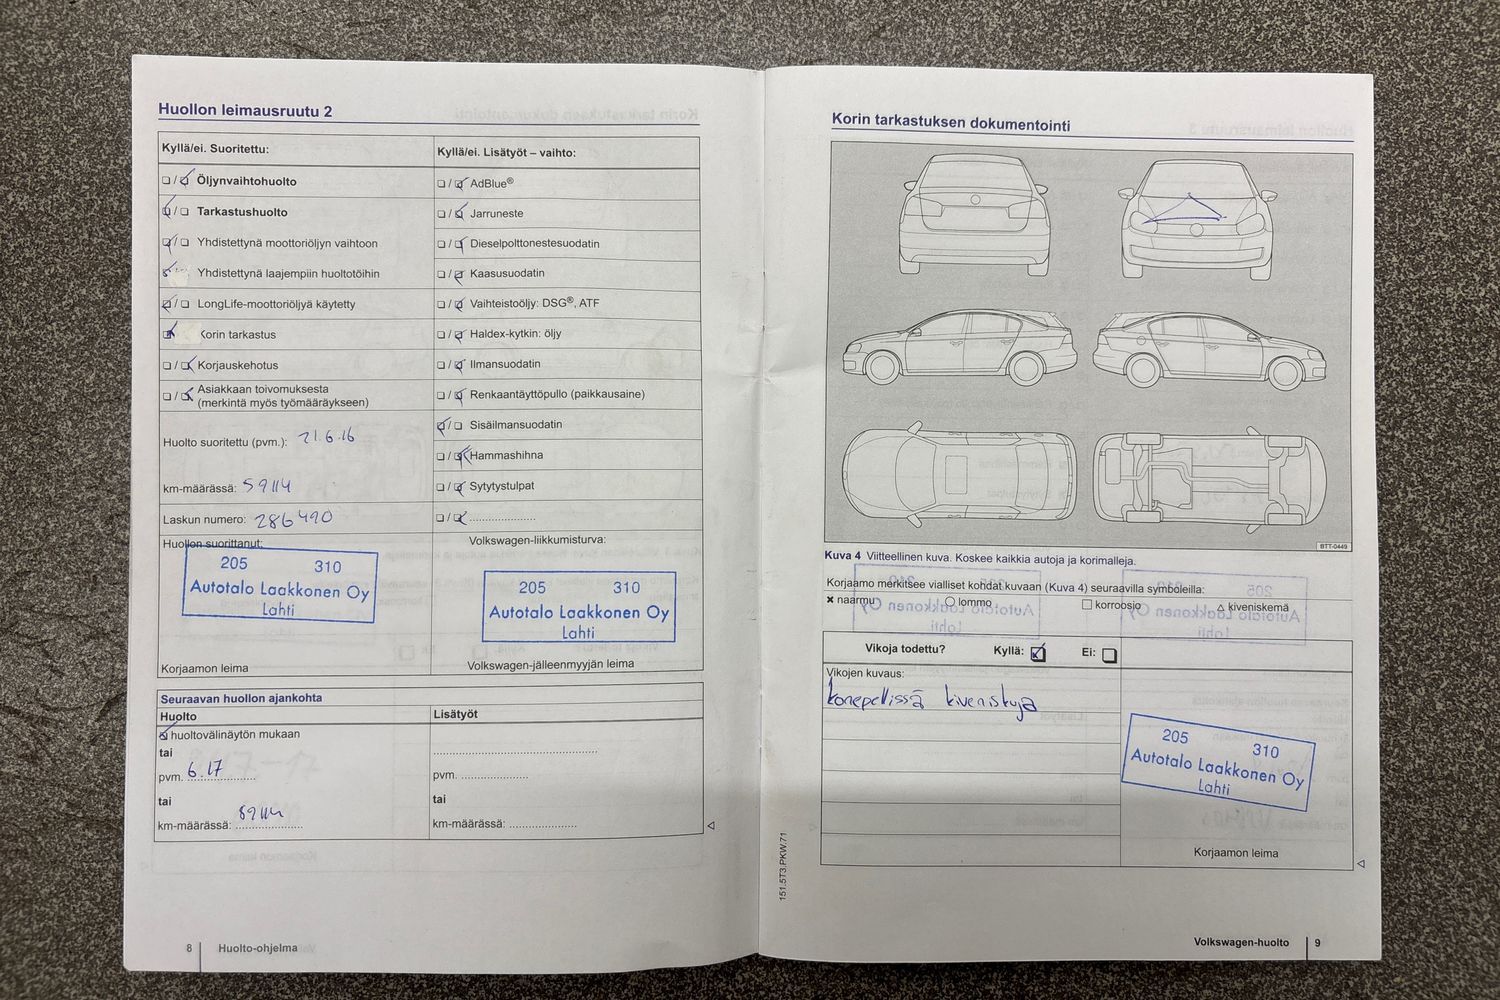 Huollon leimausruutu 2
Kyllä/ei. Suoritettu:
Öljynvaihtohuolto
Tarkastushuolto
Yhdistettynä moottoriöljyn vaihtoon
Yhdistettynä laajempiin huoltotöihin
LongLife-moottoriöljyä käytetty
Korin tarkastus
Korjauskehotus
Asiakkaan toivomuksesta
(merkintä myös työmääräykseen)
Huolto suoritettu (pvm.): 21.6.16
km-määrässä: 59114
Laskun numero: 286490
Huollon suorittanut:
205 310
Autotalo Laakkonen Oy
Lahti
Korjaamon leima
Kyllä/ei. Lisätyöt – vaihto:
AdBlue®
Jarruneste
Dieselpolttonestesuodatin
Kaasusuodatin
Vaihteistoöljy: DSG®, ATF
Haldex-kytkin: öljy
Ilmansuodatin
Renkaantäyttöpullo (paikkausaine)
Sisäilmansuodatin
Hammashihna
Sytytystulpat
Volkswagen-liikkumisturva:
205 310
Autotalo Laakkonen Oy
Lahti
Volkswagen-jälleenmyyjän leima
Seuraavan huollon ajankohta
Huolto
huoltovälinäytön mukaan
tai
pvm. 6.17
tai
km-määrässä: 89114
Lisätyöt
pvm.
tai
km-määrässä:
8 Huolto-ohjelma
Korin tarkastuksen dokumentointi
BTT-0449
Kuva 4 Viitteellinen kuva. Koskee kaikkia autoja ja korimalleja.
Korjaamo merkitsee vialliset kohdat kuvaan (Kuva 4) seuraavilla symboleilla:
naarmu lommo korroosio kiveniskemä
Vikoja todettu? Kyllä: Ei:
Vikojen kuvaus:
konepellissä kiveniskuja
205 310
Autotalo Laakkonen Oy
Lahti
Korjaamon leima
151.5T3.PKW.71
Volkswagen-huolto 9